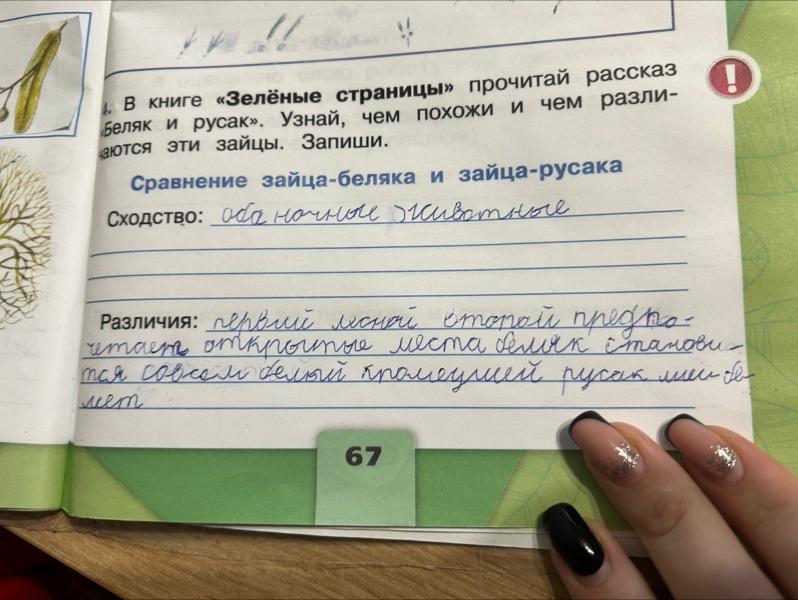 4. В книге «Зелёные страницы» прочитай рассказ
«Беляк и русак». Узнай, чем похожи и чем разли-
чаются эти зайцы. Запиши.
Сравнение зайца-беляка и зайца-русака
Сходство: оба ночные животные
Различия: первый лесной второй предпо-
четает открытые места беляк станови-
тся совсем белый кромеушей русак бе-
леет
67
!